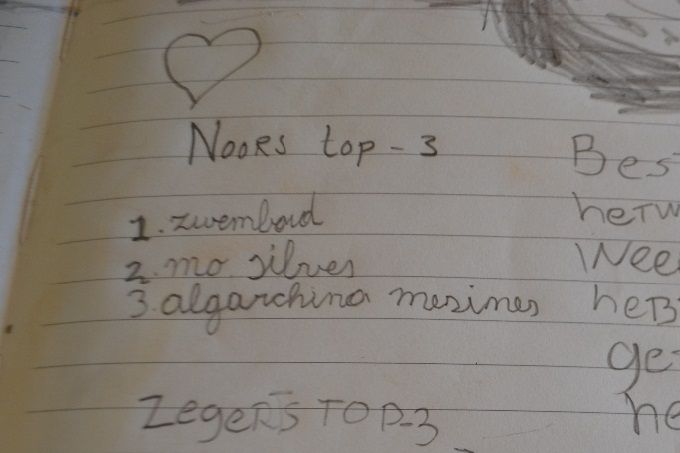 Noors top-3
1. zwembad
2. mo silves
3. algarchina mesines
Zeger's TOP-3
Bes
het
Wee
he
ge
he